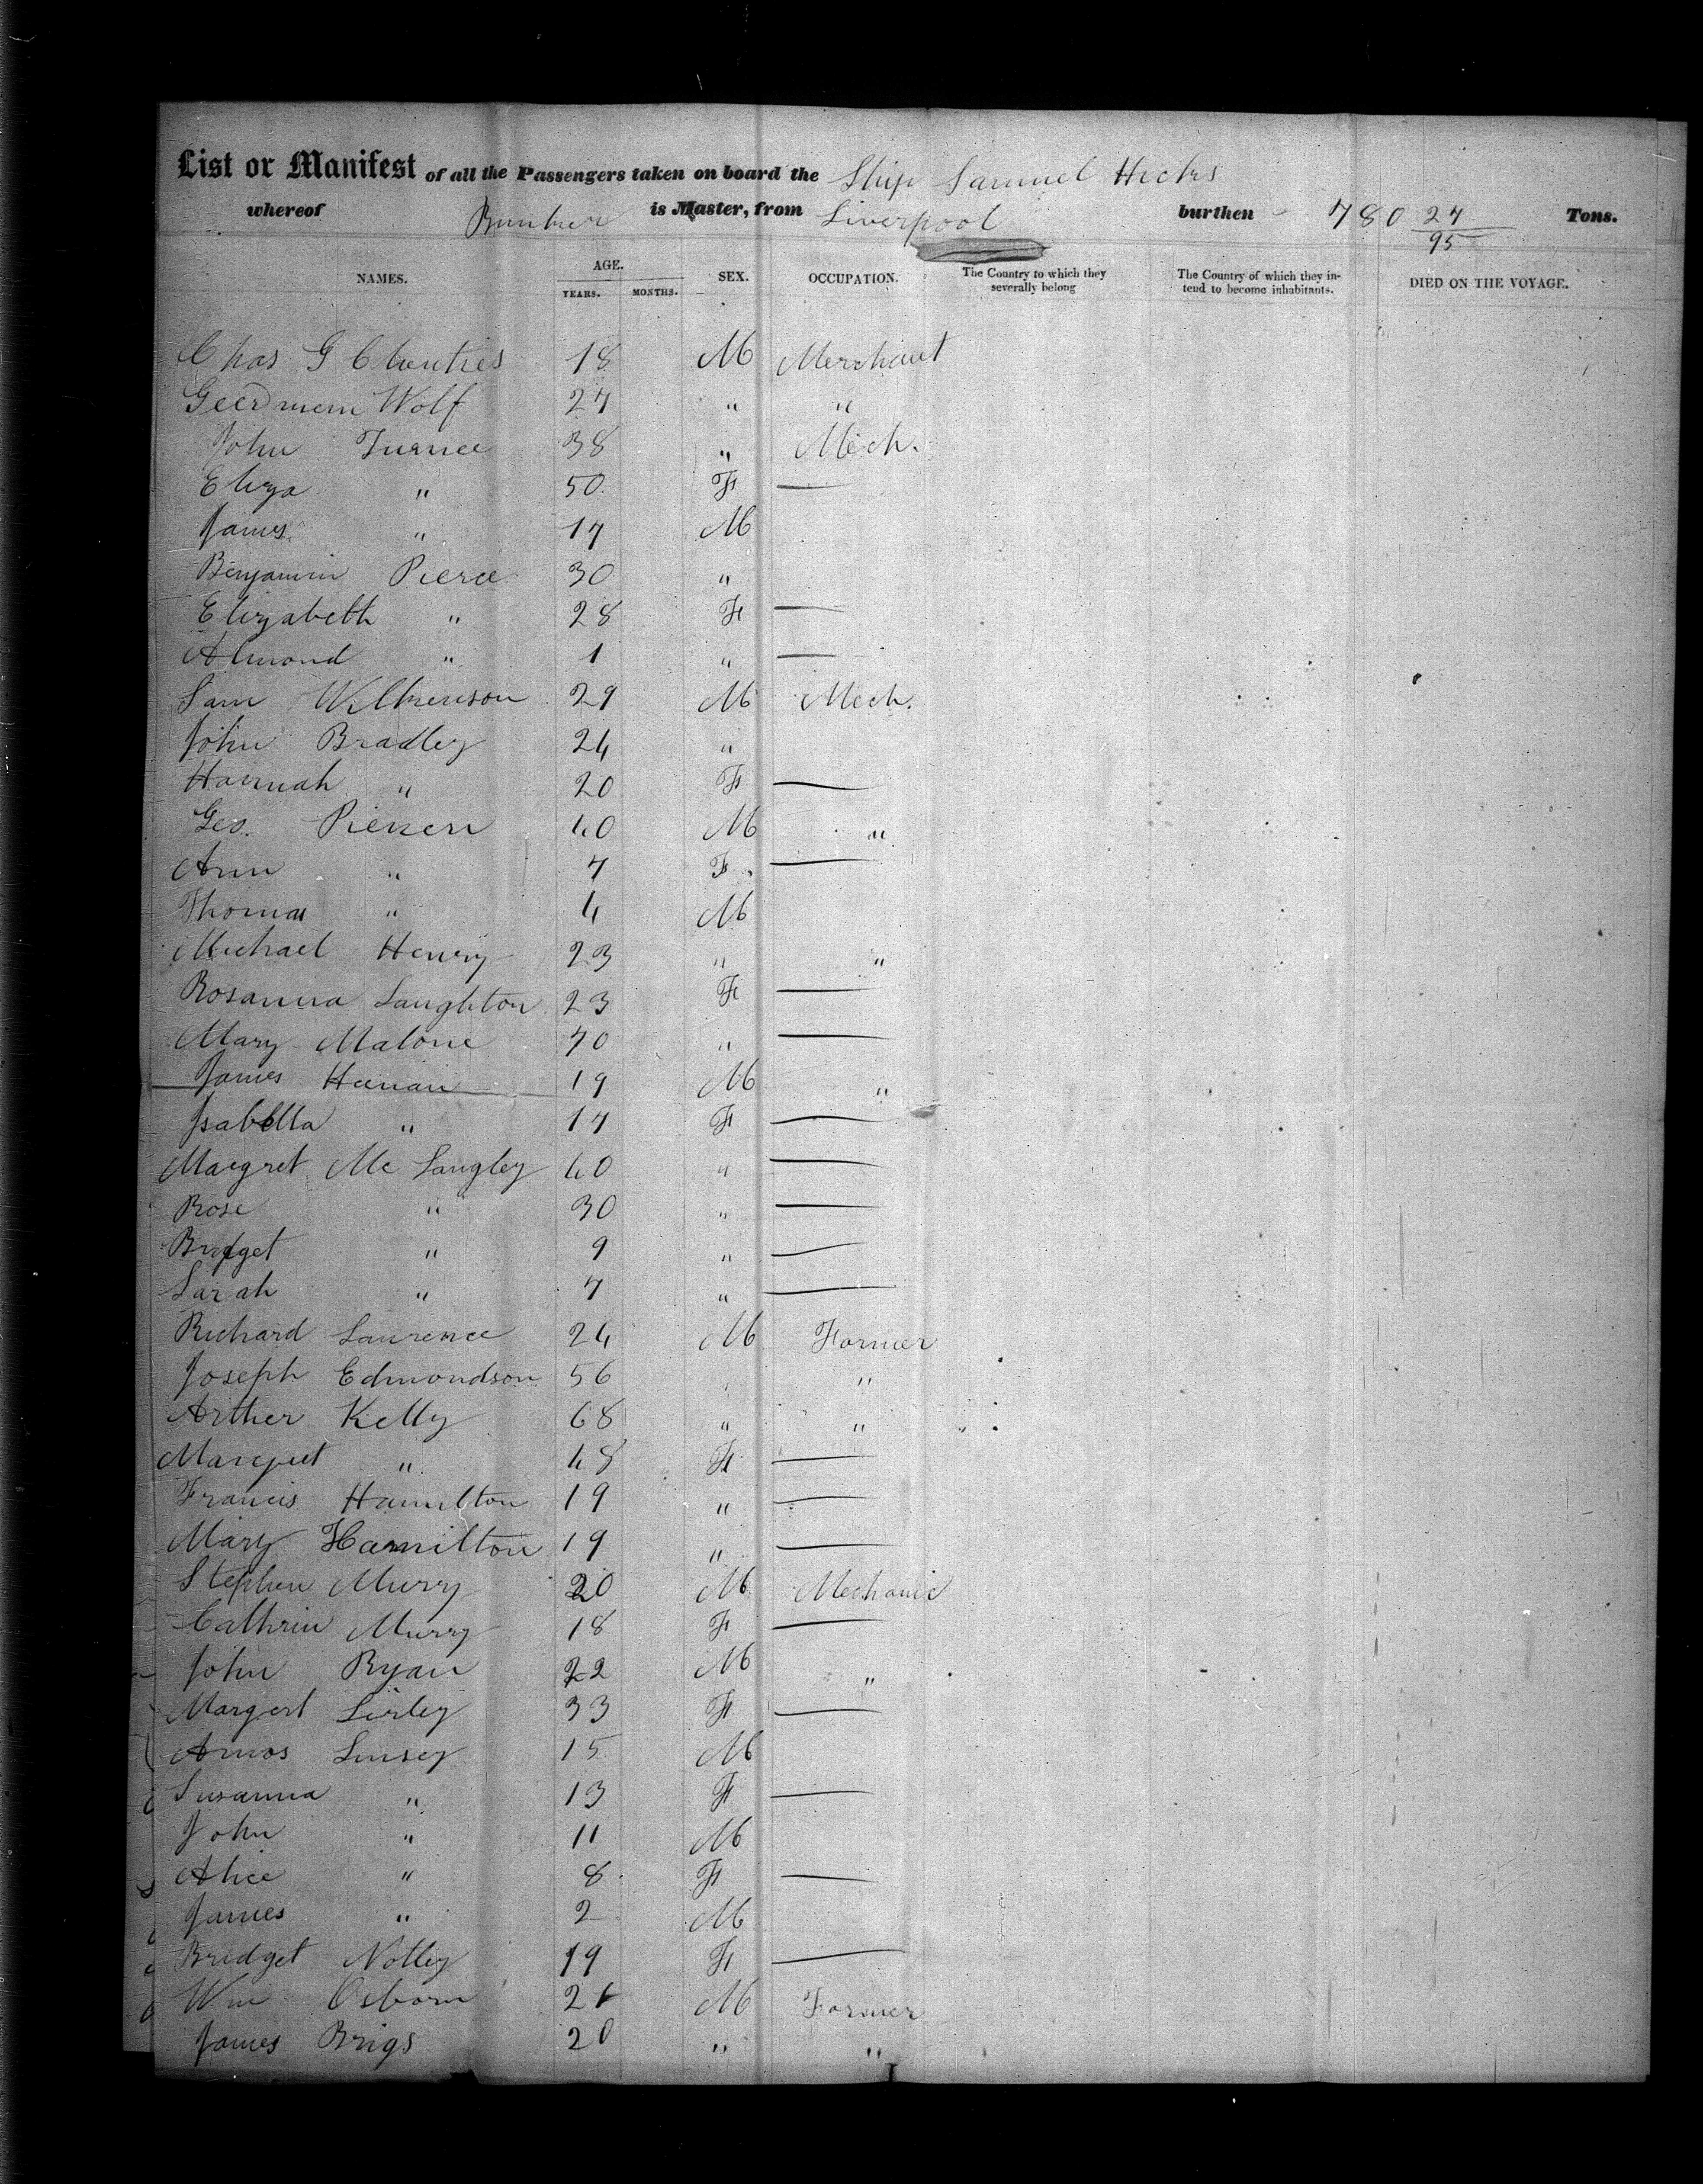 List or Manifest of all the Passengers taken on board the Ship Samuel Hicks
whereof Bunker is Master, from Liverpool burthen 780 27/95 Tons.
NAMES. AGE. YEARS. MONTHS. SEX. OCCUPATION. The Country to which they severally belong The Country of which they intend to become inhabitants. DIED ON THE VOYAGE.
Chas G 18 M Merchant
Wolf 27 " "
John Turnee 38 " Mech.
Eliza " 50 F —
James " 17 M
Benjamin Pierce 30 "
Elizabeth " 28 F —
Almond " 1 " —
Sam Wilkenson 29 M Mech.
John Bradley 24 "
Hannah " 20 F —
Geo. 40 M "
Ann " 7 F —
Thomas " 4 M
Michael Henry 23 " "
Rosanna Laughton 23 F —
Mary Malone 70 " —
James Hanan 19 M "
Isabella " 17 F —
Margret Mc Langley 40 " —
Rose " 30 " —
Bridget " 9 " —
Sarah " 7 " —
Richard Laurence 24 M Farmer
Joseph Edmondson 56 " "
Arther Kelly 68 " "
Margret " 48 F —
Francis Hamilton 19 " —
Mary Hamilton 19 " —
Stephen Murry 20 M Mechanic
Cathrin Murry 18 F —
John Ryan 22 M "
Margert 33 F —
Amos Linsey 15 M
Susanna " 13 F —
John " 11 M
Alice " 8 F —
James " 2 M
Bridget Notley 19 F —
Wm Osborn M Farmer
James Brigs 20 " "